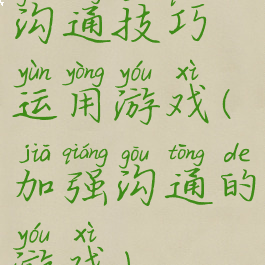 沟通技巧
yùn yòng yóu xì
运用游戏(
jiā qiáng gōu tōng de
加强沟通的
yóu xì
游戏)